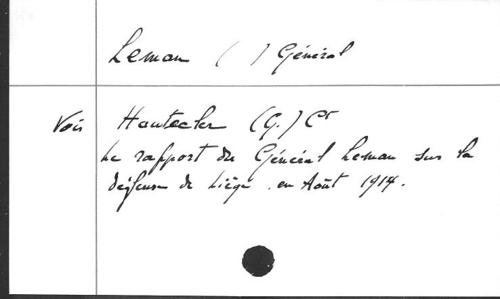 Leman ( ) Général
Voir Hautecler (G.) Ct
Le rapport du Général Leman sur la
défense de Liège en Août 1914.